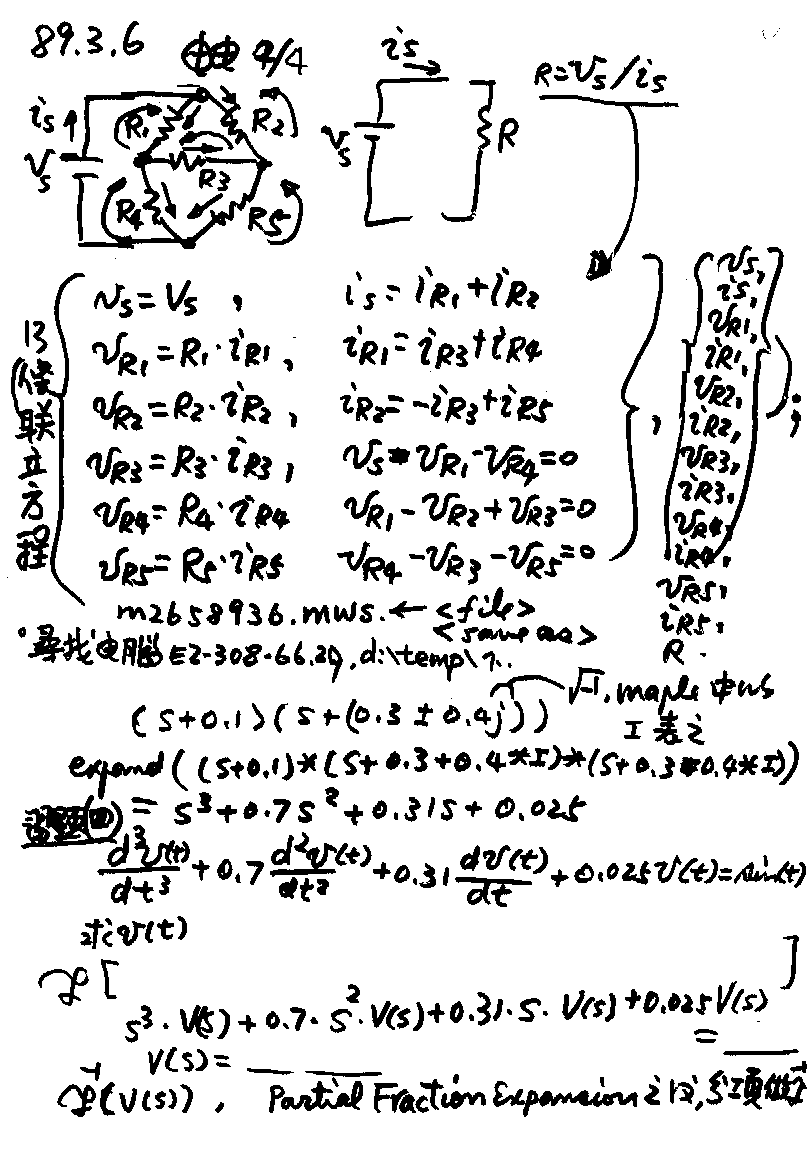 89.3.6 9/4
is Vs R1 R2 R3 R4 R5
is Vs R
R=Vs/is
13 條联立方程
Vs=Vs , is=iR1+iR2
VR1=R1·iR1, iR1=iR3+iR4
VR2=R2·iR2, iR2=-iR3+iR5
VR3=R3·iR3, Vs-VR1-VR4=0
VR4=R4·iR4 VR1-VR2+VR3=0
VR5=R5·iR5 VR4-VR3-VR5=0
Vs,
is,
VR1,
iR1,
VR2,
iR2,
VR3,
iR3,
VR4,
iR4,
VR5,
iR5,
R.
m2658936.mws.←<file>
<save as>
尋找电腦 E2-308-66.29, d:\temp\
(s+0.1)(s+(0.3±0.4j)) √-1, maple 中以
I 表之
expand((s+0.1)*(s+0.3+0.4*I)*(s+0.3-0.4*I))
= s³+0.7s²+0.31s+0.025
d³v(t)/dt³+0.7 d²v(t)/dt²+0.31 dv(t)/dt+0.025v(t)=sin(t)
求v(t)
ℒ[ ]
s³·V(s)+0.7·s²·V(s)+0.31·s·V(s)+0.025V(s)
=
V(s)=
ℒ⁻¹(V(s)), Partial Fraction Expansion 之後,